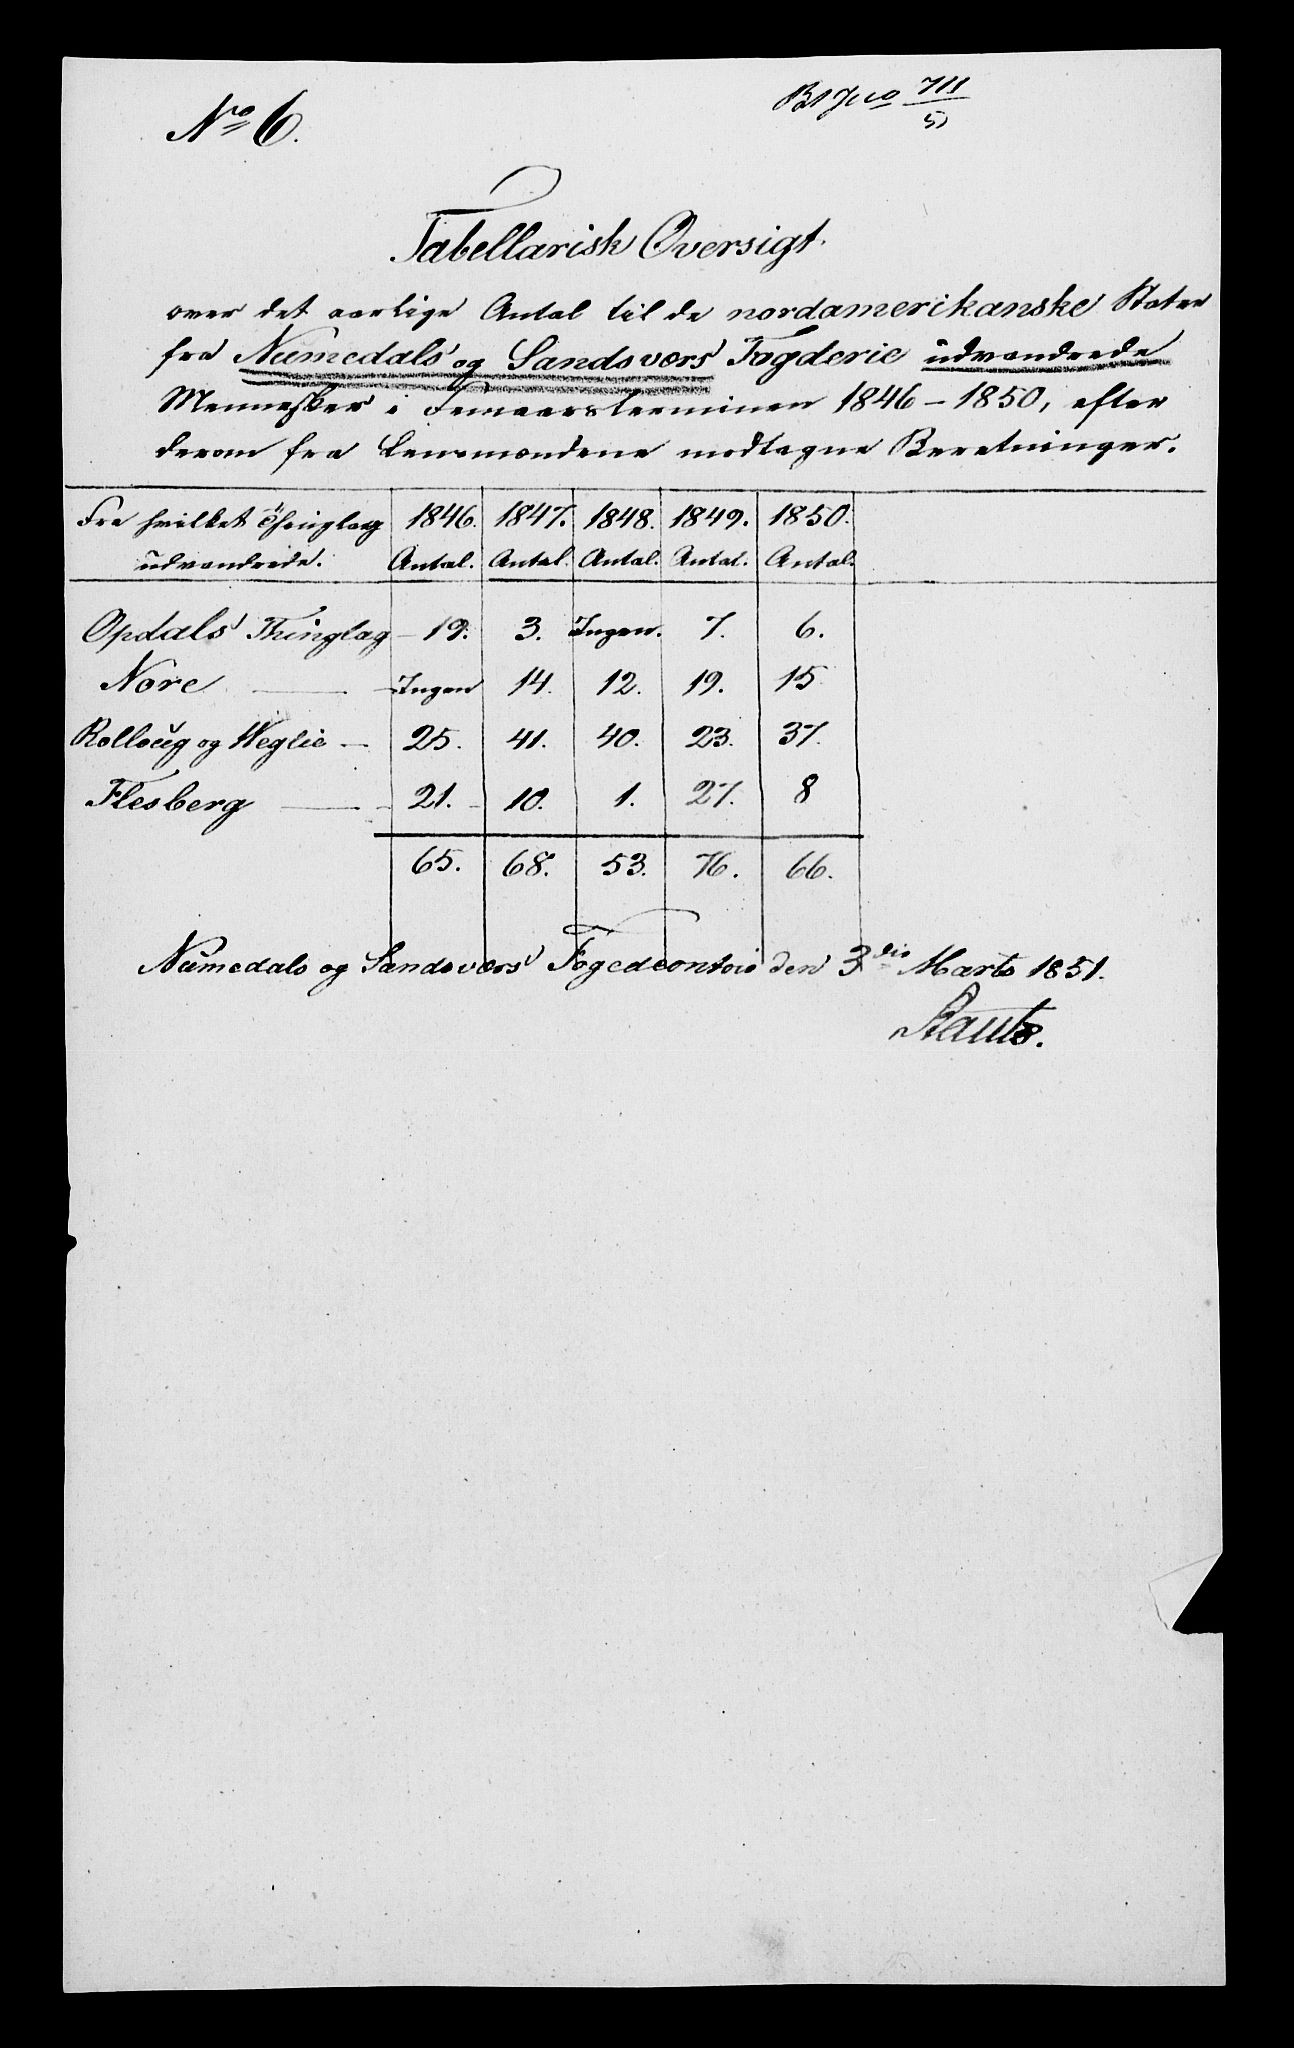 No 6.
711
51
Tabellarisk Oversigt
over det aarlige Antal til de nordamerikanske Stater
fra Numedals og Sandsværs Fogderie udvandrede
Mennesker i Femaarsterminen 1846 - 1850, efter
derom fra Lensmændene modtagne Beretninger.
Fra hvilket Thinglag 1846. 1847. 1848. 1849. 1850.
udvandrede. Antal. Antal. Antal. Antal. Antal.
Opdals Thinglag - 19. 3. Ingen. 7. 6.
Nore — - Ingen 14. 12. 19. 15
Rolloug og Weglie - 25. 41. 40. 23. 37.
Flesberg — - 21. - 10. 1. 27. 8
65. 68. 53. 76. 66.
Numedals og Sandsværs Fogedcontoir den 3die Marts 1851.